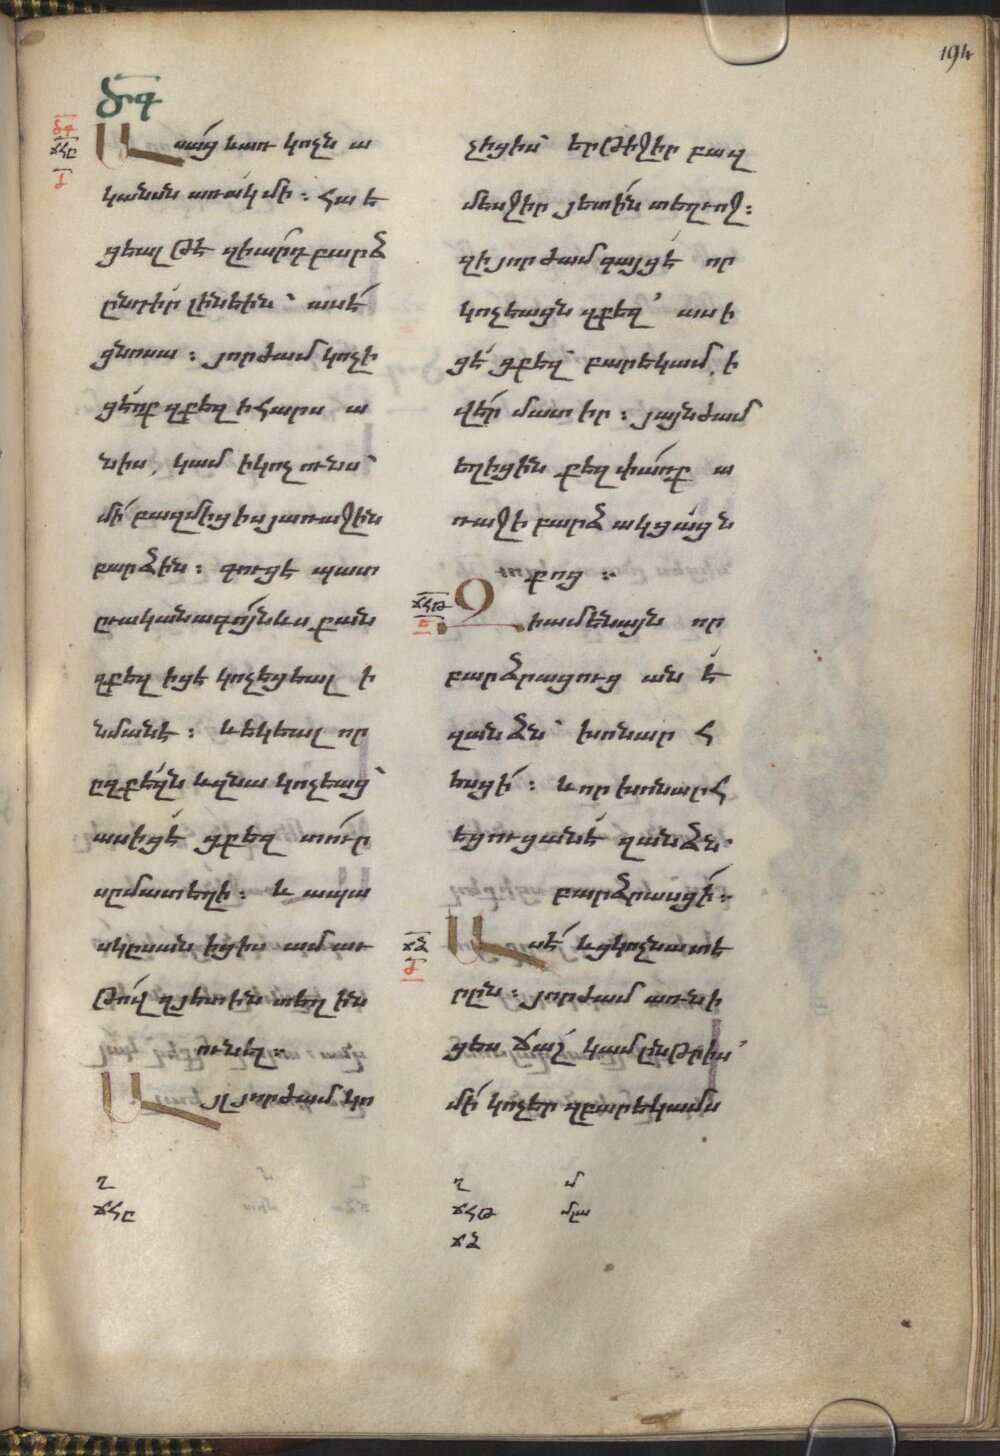 194
ԾԳ
ԾԳ
ՃՀԸ
Ժ
Ասաց և առ կոչն ա
կանսն առակ մի ։ հայե
ցեալ թե զիարդ բարձ
ընտիր լինեին՝ ասէ
ցնոսա ։ յորժամ կոչի
ցեոք զքեզ ի հարս ա
նիս, կամ ի կոչունս՝
մի բազմիցիս յառաջին
բարձին ։ գուցէ պատ
ուականագոյն ևս քան
զքեզ իցէ կոչեցեալ ի
նմանէ ։ և եկեալ որ
ըզքեզն և զնա կոչեաց՝
ասիցէ ցքեզ տուր
սըմա տեղի ։ և ապա
սկըսանիցիս ամաւ
թով զյետին տեղին
ունել ։
Այլ յորժամ կո
չիցիս՝ երթիջիր բազ
մեսջիր յետին տեղւոջ ։
զի յորժամ գայցէ որ
կոչեացն զքեզ՝ ասի
ցէ ցքեզ՝ բարեկամ, ի
վեր մատիր ։ յայնժամ
եղիցին քեզ փառք ա
ռաջի բարձակցացն
քոց ։
ՃՀԹ
Ե
Զի ամենայն որ
բարձրացուցանէ
զանձն՝ խոնար հ
եսցի ։ և որ խոնարհ
եցուցանէ զանձն՝
բարձրասցի ։
ՃՁ
Ժ
Ասէ և ցկոչնատէ
րըն ։ յորժամ առնի
ցես ճաշ կամ ընթրիս՝
մի կոչեր զբարեկամս
Ղ
ՃՀԸ
Ղ
ՃՀԹ
ՃՁ
Մ
ՄԼԱ